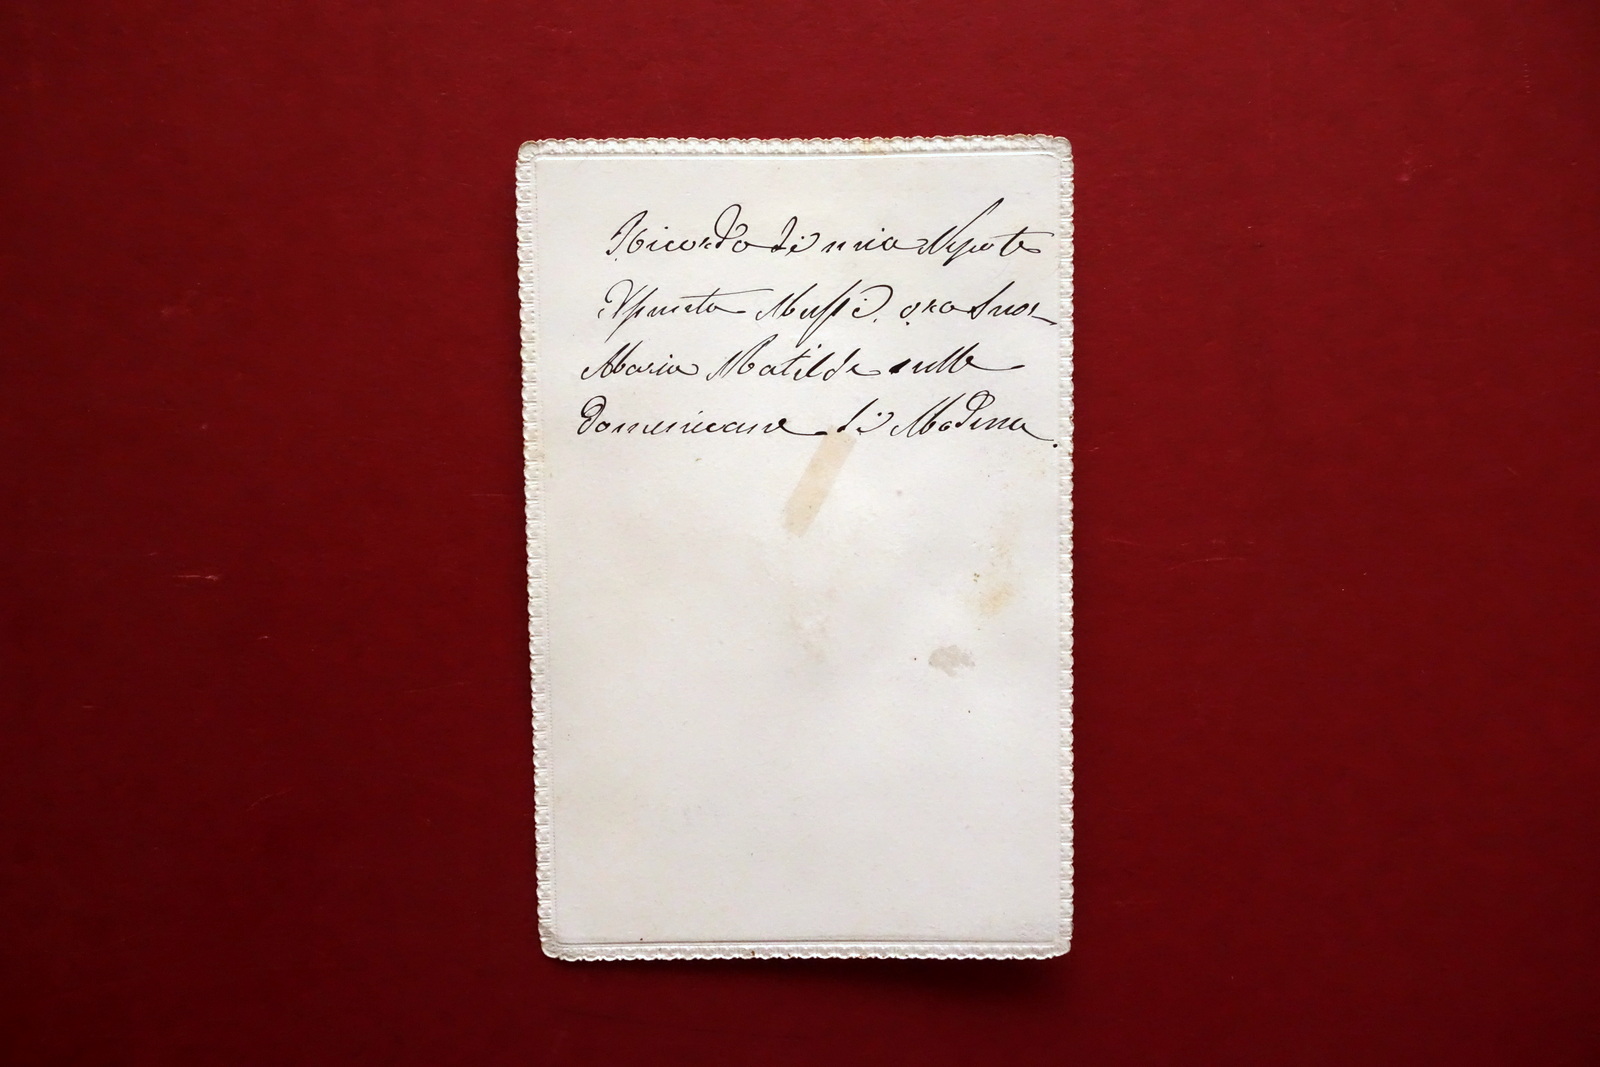 Ricordo di mia Nepote
Massi. ora Suor
Maria Matilde nelle
Domenicane di Modena.